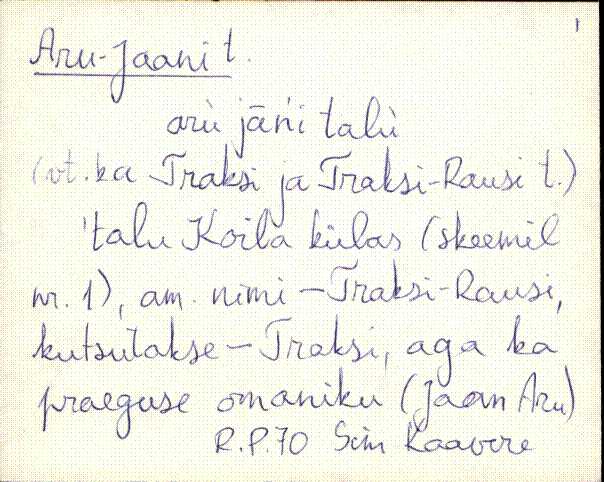 1
Aru-Jaani t.
arù jāńi talù
(vt. ka Traksi ja Traksi-Rausi t.)
'talu Koila külas (skeemil
nr. 1), am. nimi – Traksi-Rausi,
kutsutakse – Traksi, aga ka
praeguse omaniku (Jaan Aru)
R.P.70 Sim Raavere